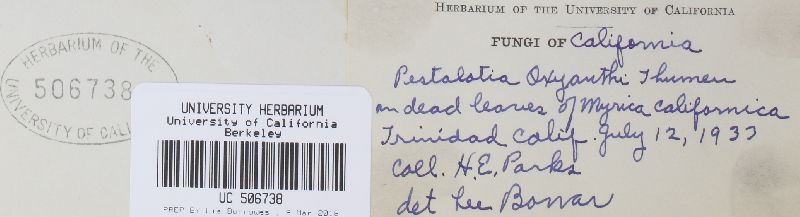 HERBARIUM OF THE
506738
UNIVERSITY OF CAL
UNIVERSITY HERBARIUM
University of California
Berkeley
UC 506738
HERBARIUM OF THE UNIVERSITY OF CALIFORNIA
FUNGI OF California
Pestalotia Oxyanthi Thumen
on dead leaves of Myrica californica
Trinidad Calif. July 12, 1933
Coll. H.E. Parks
det Lee Bonar